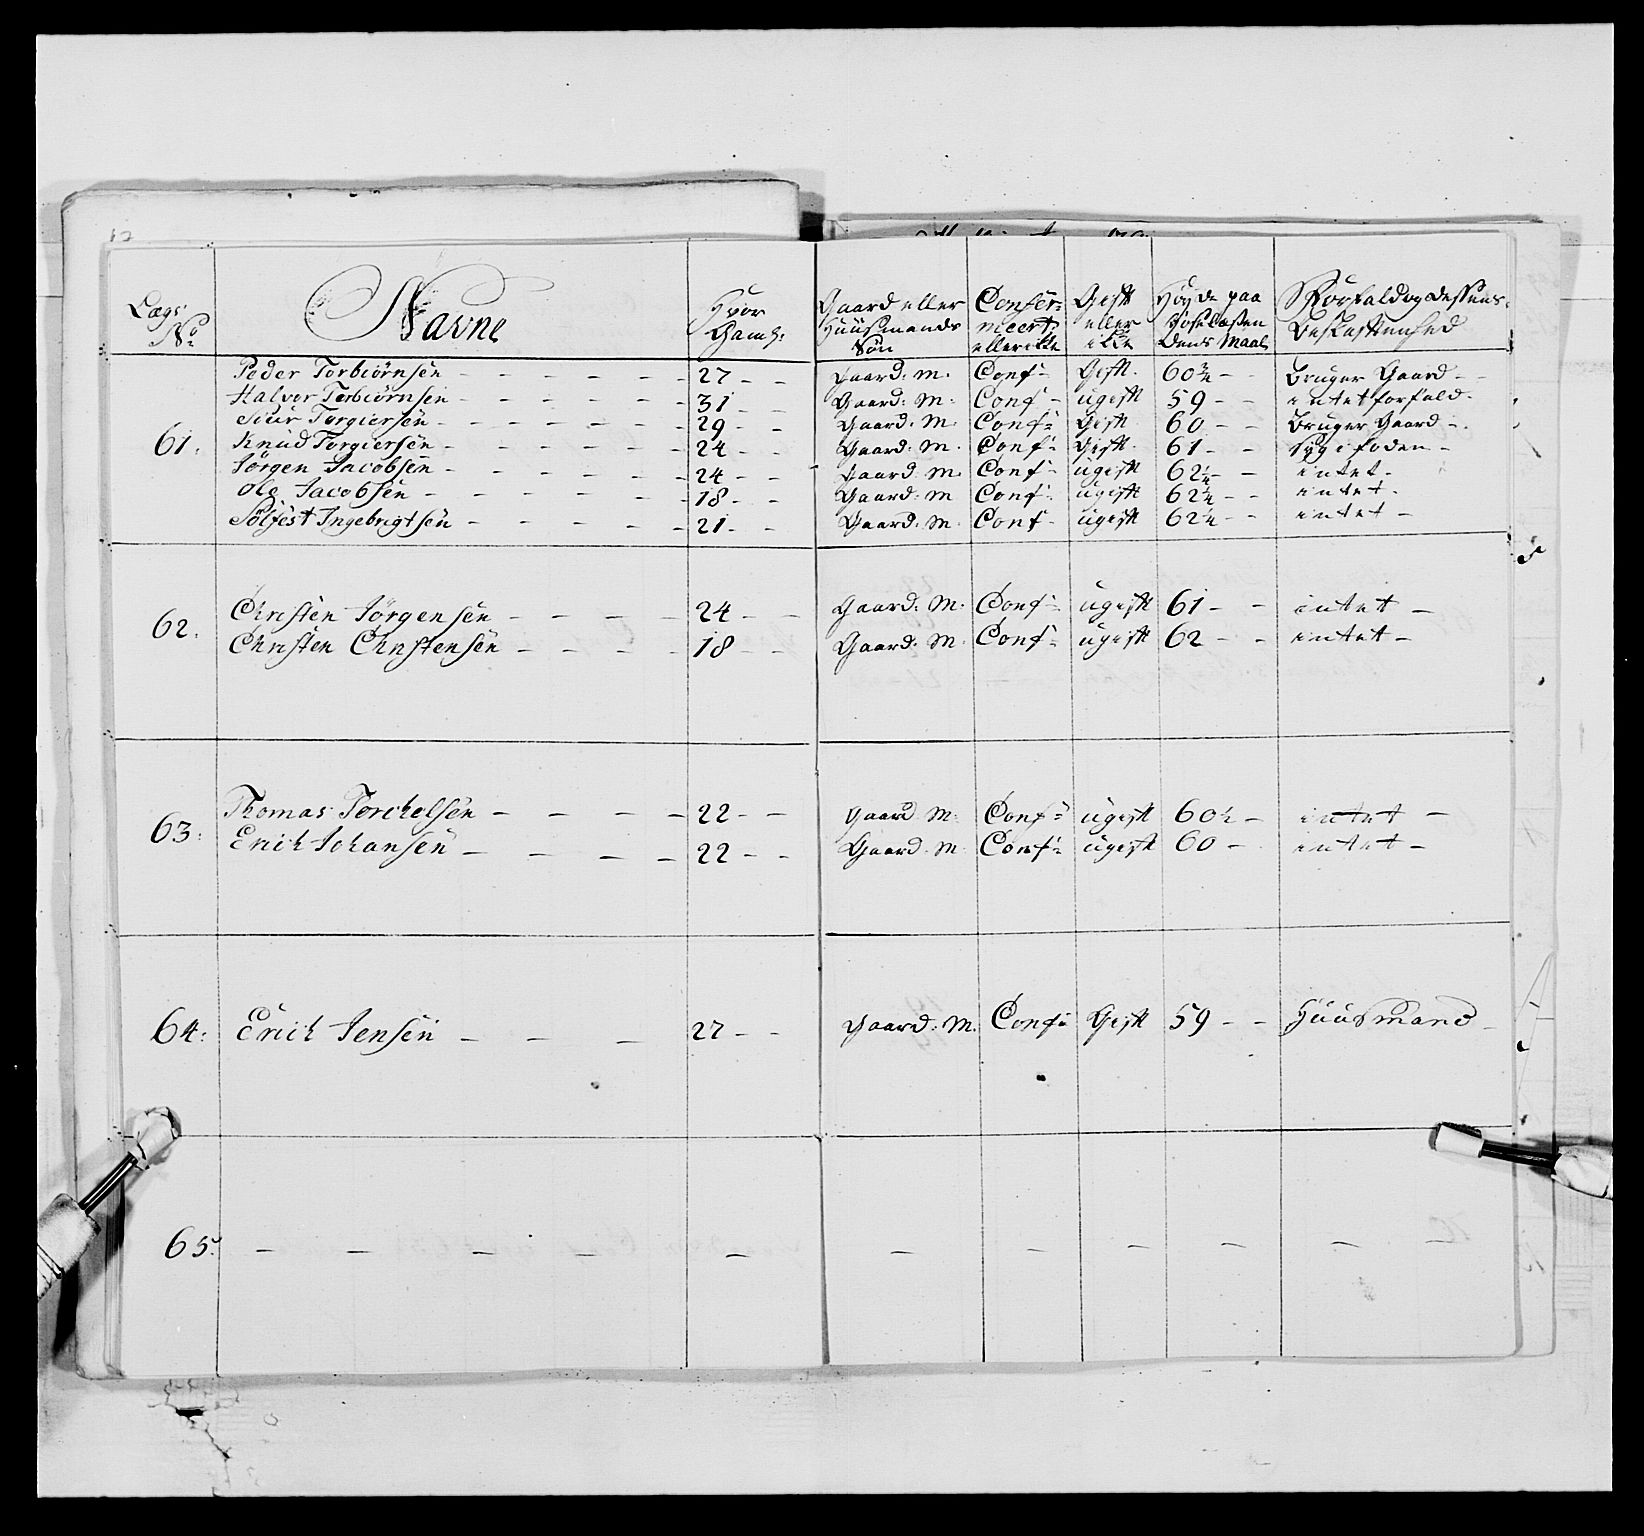 Lægs No Navne Hvor Gaml: Gaard eller Huusmands Søn Confer= meert eller ikke Gift eller ikke Høyde paa Hoselæsten Dends Maal Forfald og dessens Beskaffenhed
Peder Torbiörnsen - - - - - - 27 - - Gaard: M. Conf:- Gift. 60 3/4 - - Bruger Gaard -
Halvor Torbiörnsen - - - - - - 31 - - Gaard: M: Conf - ugift 59 - - intet forfald -
Siur Torgiersen - - - - - - 29 - - Gaard: M. Conf:- Gift 60 - - Bruger Gaard -
61. Knud Torgiersen - - - - - - 24 - - Gaard: M. Conf:- Gift. 61 - - Syg i foden -
Jörgen Jacobsen - - - - - - 24 - - Gaard M. Conf:- ugift 62 1/4 - intet -
Ole Jacobsen - - - - - - 18 - - Gaard: M Conf:- ugift 62 1/4 - - intet -
Sölfest Ingebrigtsen - - - - - - 21 - - Gaard: M. Conf - ugift 62 1/4 - - intet -
62. Christen Jörgensen - - - - 24 - - Gaard: M. Conf:- ugift 61 - - intet -
Christen Christensen - - - - 18 - - Gaard: M. Conf:- ugift 62 - - intet -
63: Thomas Torchelsen - - - - 22 - - Gaard M: Conf:- ugift 60 1/2 - intet -
Erich Johansen - - - - 22 - - Gaard: M Conf:- ugift 60 - intet -
64: Erich Jensen - - - 27 - - Gaard: M. Conf:- Gift 59 - - Huusmand -
65: - - - - - - - - - - -